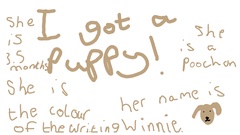 She
is
3.5
months
I got a
puppy!
She
is a
Poochon
She is
the colour
of the writing
her name is
Winnie.